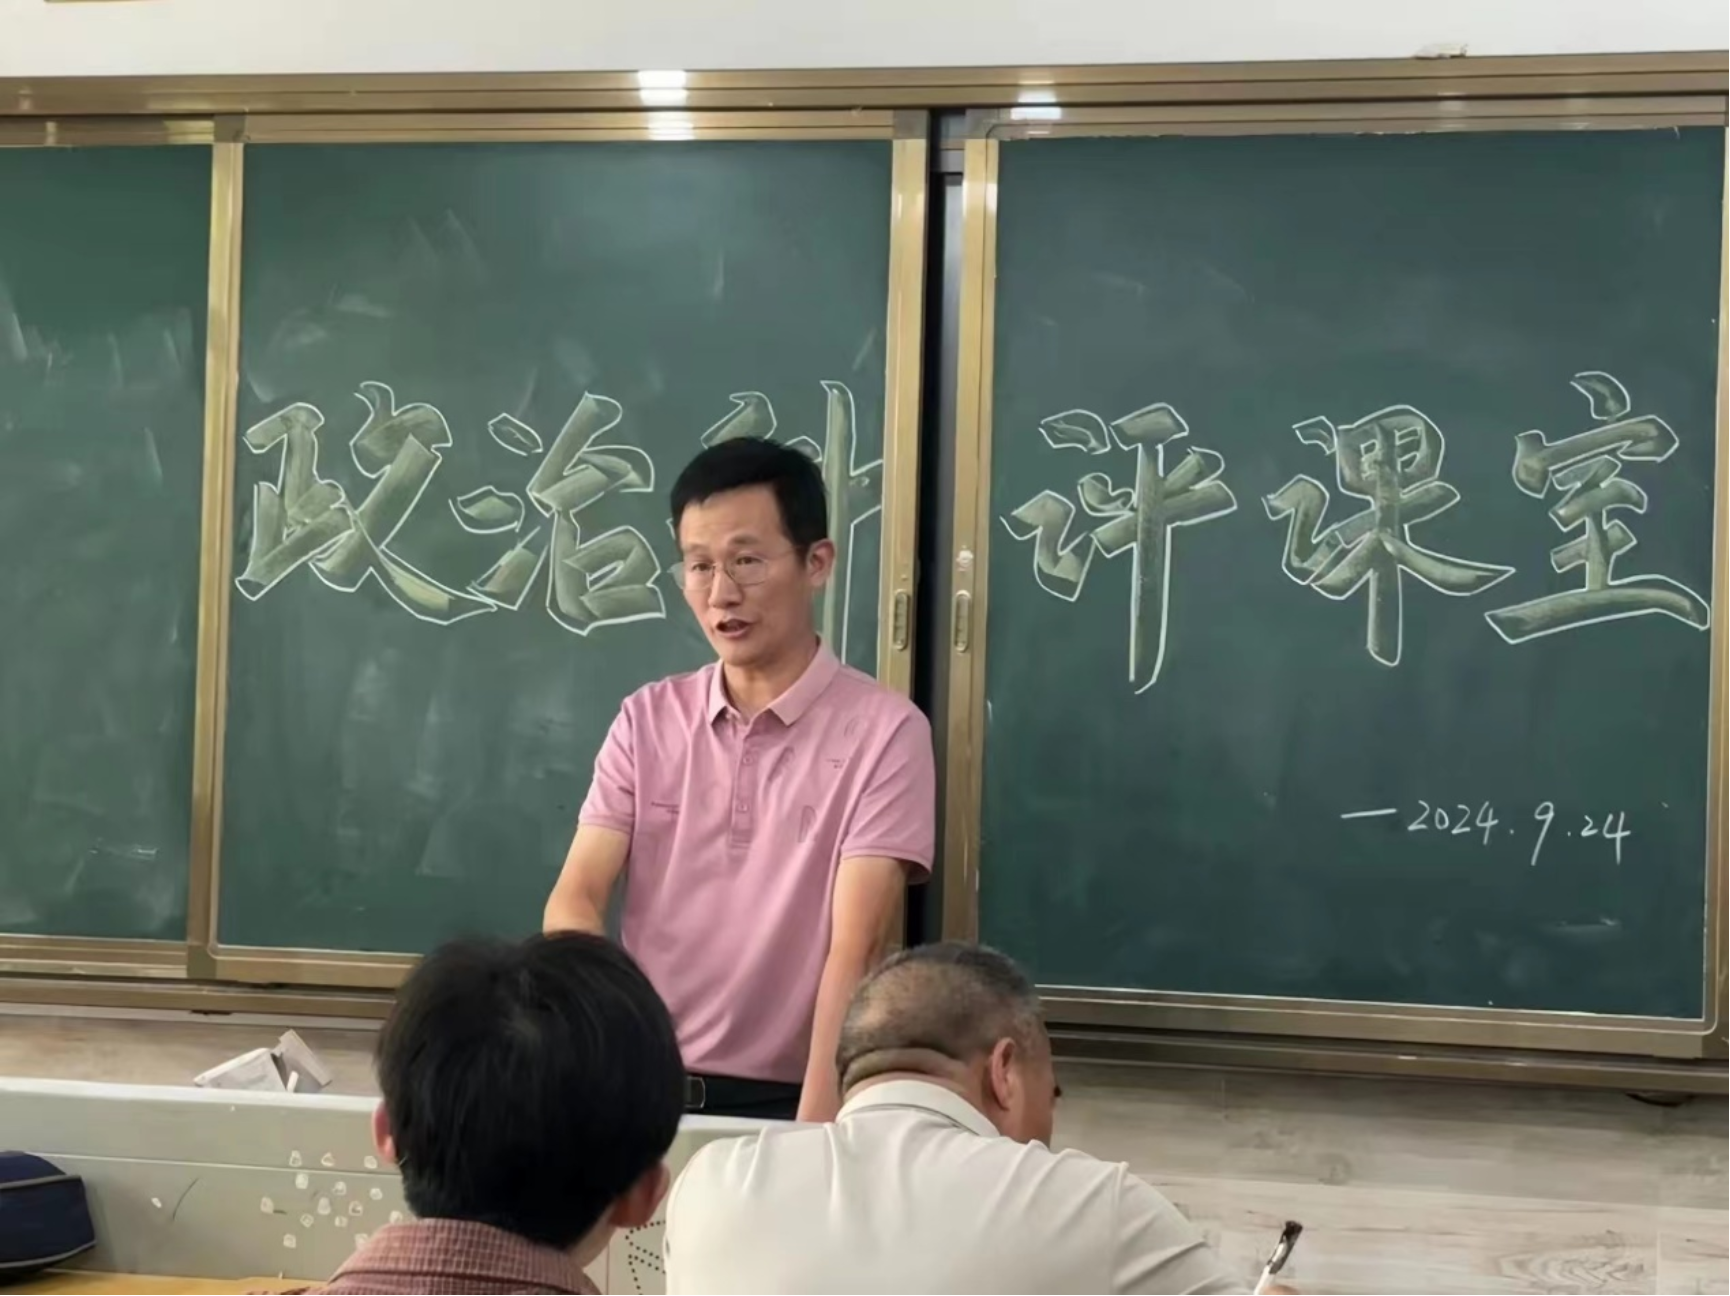 政治科评课室
—2024.9.24